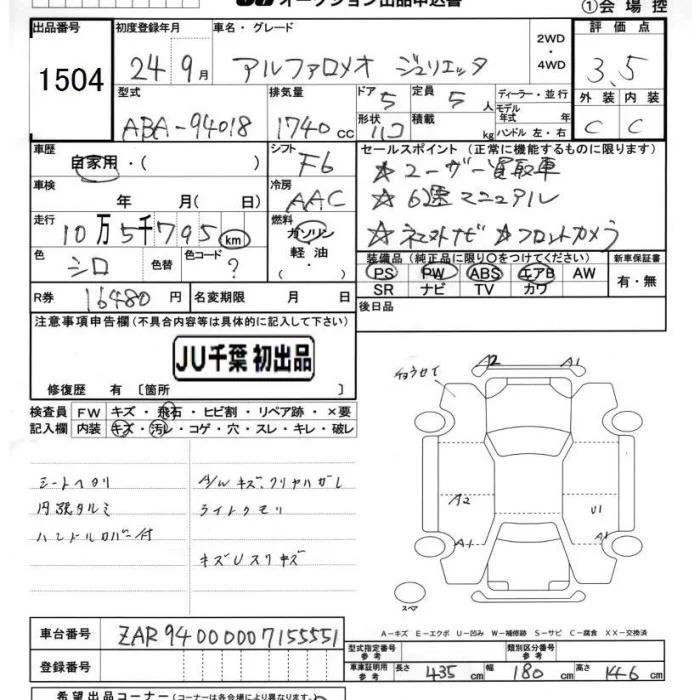 オークション出品申込書
①会場控
出品番号 初度登録年月 車名・グレード 2WD・4WD 評価点
1504 24年9月 アルファロメオ ジュリエッタ 3.5
型式 排気量 ドア 5 定員 5人 ディーラー・並行 外装 内装
ABA-94018 1740cc 形状 ハコ 積載 kg モデル年式 年 ハンドル 左・右 C C
車歴 シフト セールスポイント(正常に機能するものに限ります)
自家用・( ) F6 ☆ユーザー買取車
車検 冷房 ☆6速マニュアル
年 月( 日) AAC
走行 燃料 ☆社外ナビ ☆フロントカメラ
10万5千795km ガソリン・軽油・
色 色替 色コード 装備品(純正品に限り○をつけてください) 新車保証書
シロ ? PS PW ABS エアB AW 有・無
SR ナビ TV カワ
R券 16480円 名変期限 月 日 後日品
注意事項申告欄(不具合内容等は具体的に記入して下さい)
JU千葉 初出品
修復歴 有〔箇所 〕
検査員 FW キズ・飛石・ヒビ割・リペア跡・×要
記入欄 内装 キズ・汚レ・コゲ・穴・スレ・キレ・破レ
シートヘタリ A/W キズ、クリヤハガレ
内張タルミ ライトクモリ
ハンドルカバー付
キズUスリキズ
A2 A1
A2 U1
A1 A1
スペア
A-キズ E-エクボ U-凹み W-補修跡 S-サビ C-腐食 XX-交換済
車台番号 ZAR94000007155551 型式指定番号 参考 類別区分番号 参考
登録番号 車庫証明用 参考 長さ 435cm 幅 180cm 高さ 146cm
希望出品コーナー